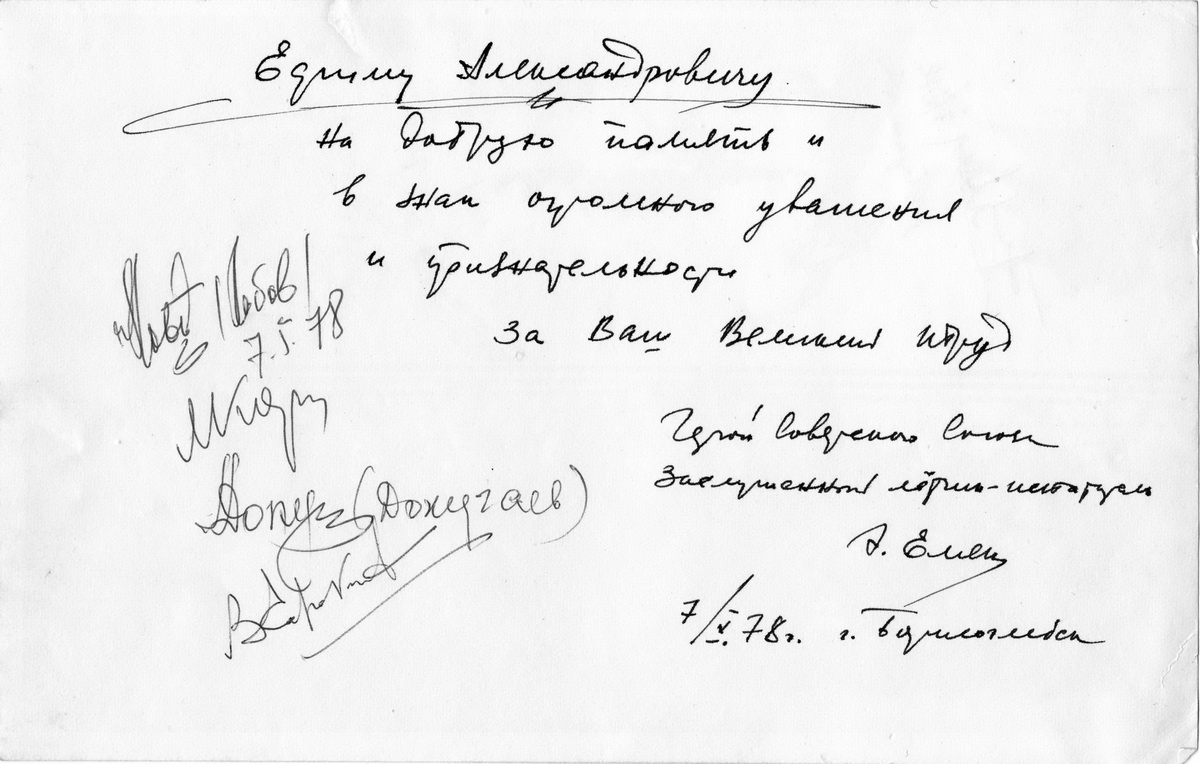 Ефиму Александровичу
на добрую память и
в знак огромного уважения
и признательности
за Ваш Великий труд
Герой Советского Союза
Заслуженный лётчик-испытатель
7/V.78г. г. Борисоглебск
/Лобов/
7.V.78
(Докучаев)